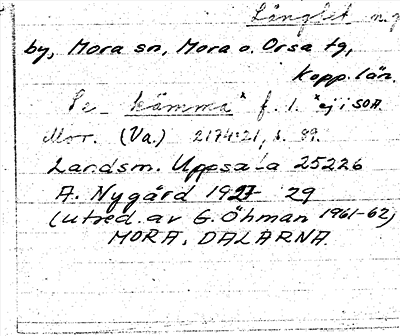 Långlet n.
by, Mora sn, Mora o. Orsa tg,
Kopp. län.
Se kämma* f. 1. *ej i SOA.
Mor. (Va.) 2174:21, s. 89.
Landsm. Uppsala 25226
A. Nygård 1927-29
(utred. av G. Öhman 1961-62)
MORA, DALARNA.